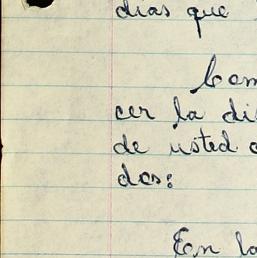 dias que
Com
cer la di
de usted
des:
En la